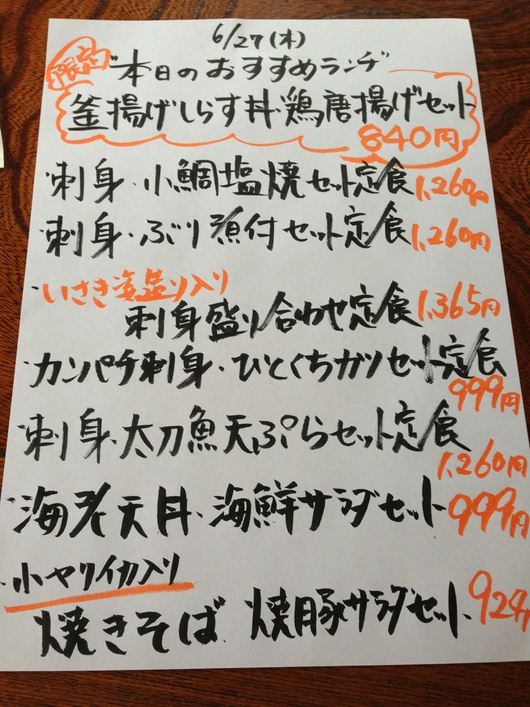 6/27(木)
限定 本日のおすすめランチ
釜揚げしらす丼・鶏唐揚げセット
840円
・刺身・小鯛塩焼セット定食 1,260円
・刺身・ぶり煮付セット定食 1,260円
・いさき姿盛り入り
刺身盛り合わせ定食 1,365円
・カンパチ刺身・ひとくちカツセット定食
999円
・刺身・太刀魚天ぷらセット定食
1,260円
・海老天丼・海鮮サラダセット 999円
・小ヤリイカ入り
焼きそば 焼豚サラダセット 924円